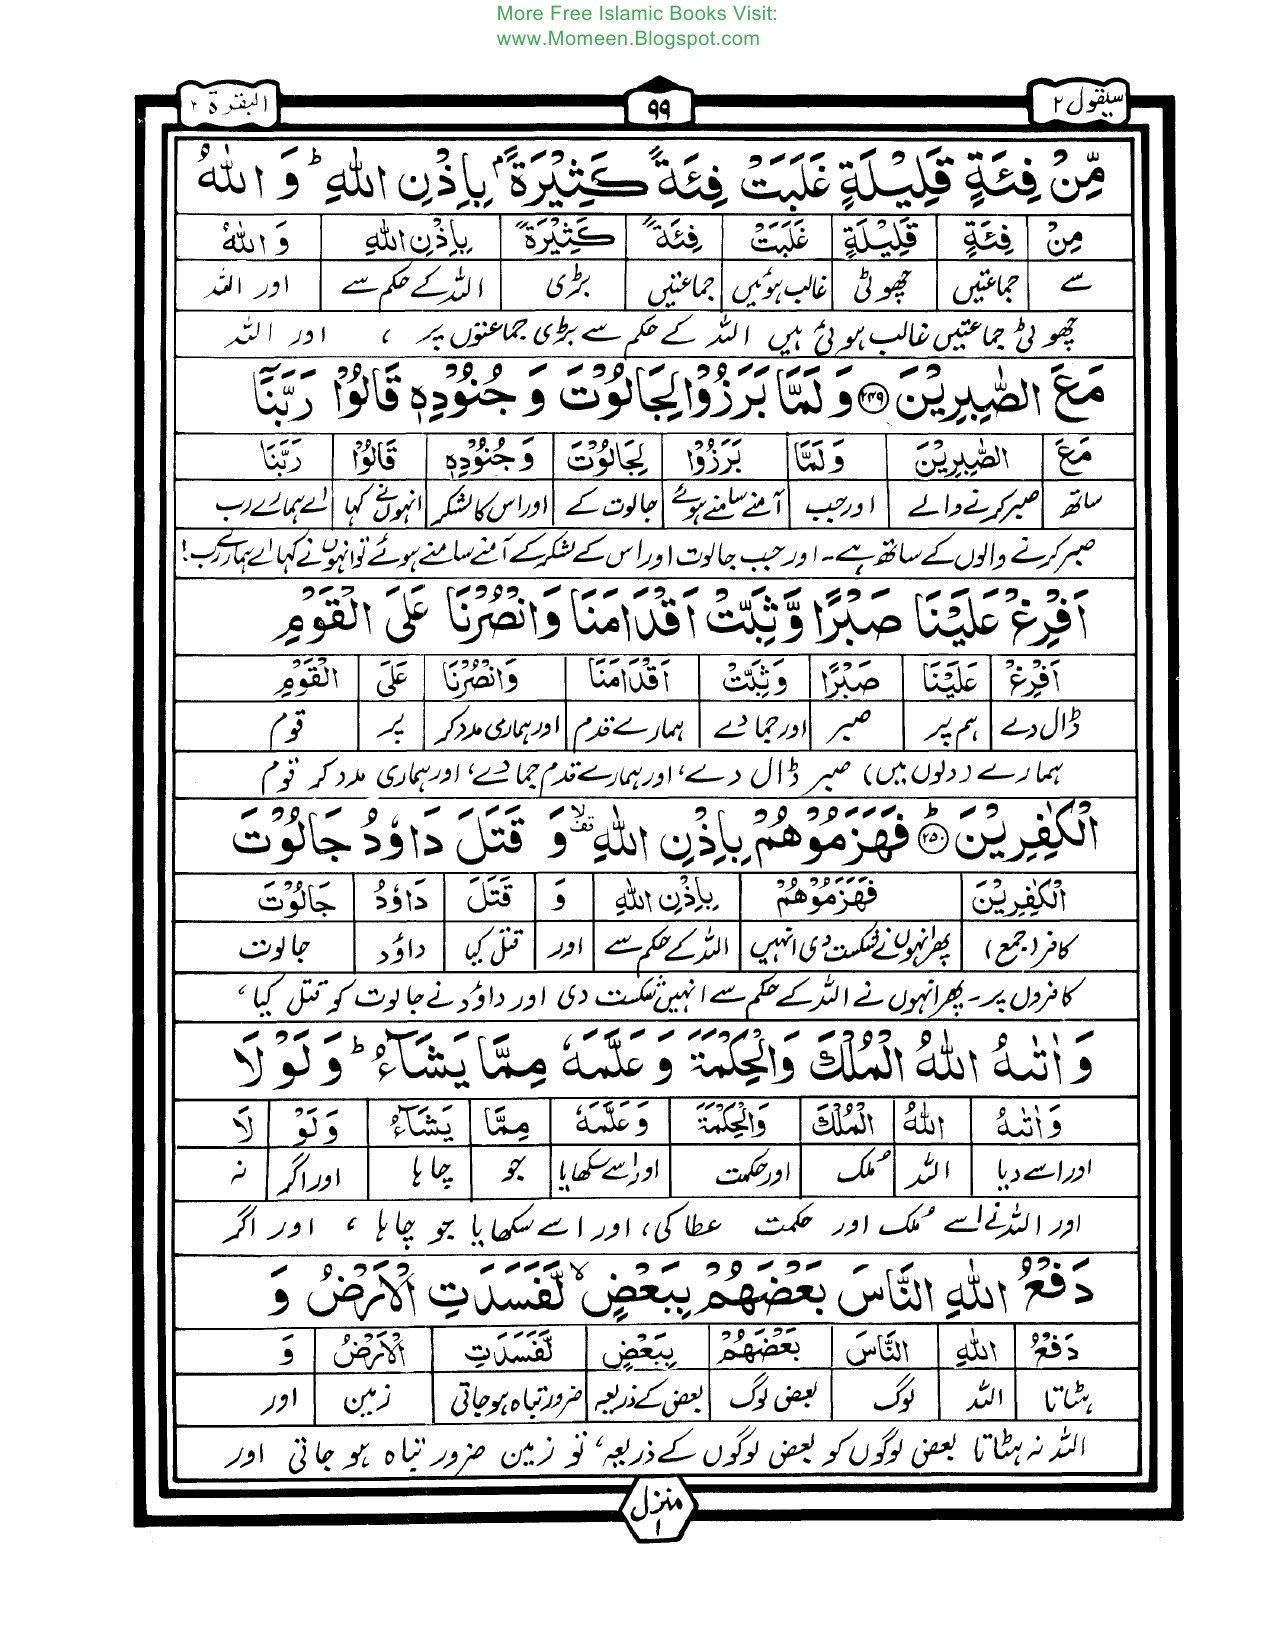 More Free Islamic Books Visit:
www.Momeen.Blogspot.com
سیقول ۲ ۹۹ البقرة ۲
مِّنْ فِئَةٍ قَلِیْلَةٍ غَلَبَتْ فِئَةً كَثِیْرَةًۢ بِاِذْنِ اللّٰهِ ؕ وَ اللّٰهُ
مِنْ فِئَةٍ قَلِیْلَةٍ غَلَبَتْ فِئَةً كَثِیْرَةً بِاِذْنِ اللّٰهِ وَ اللّٰهُ
سے جماعتیں چھوٹی غالب ہوئیں جماعتیں بڑی اللہ کے حکم سے اور اللہ
چھوٹی جماعتیں غالب ہوئی ہیں اللہ کے حکم سے بڑی جماعتوں پر ، اور اللہ
مَعَ الصّٰبِرِیْنَ ۲۴۹ وَ لَمَّا بَرَزُوْا لِجَالُوْتَ وَ جُنُوْدِهٖ قَالُوْا رَبَّنَاۤ
مَعَ الصّٰبِرِیْنَ وَ لَمَّا بَرَزُوْا لِجَالُوْتَ وَ جُنُوْدِهٖ قَالُوْا رَبَّنَا
ساتھ صبر کرنے والے اور جب آمنے سامنے ہوئے جالوت کے اور اس کا لشکر انہوں نے کہا اے ہمارے رب
صبر کرنے والوں کے ساتھ ہے۔ اور جب جالوت اور اس کے لشکر کے آمنے سامنے ہوئے تو انہوں نے کہا اے ہمارے رب!
اَفْرِغْ عَلَیْنَا صَبْرًا وَّ ثَبِّتْ اَقْدَامَنَا وَ انْصُرْنَا عَلَى الْقَوْمِ
اَفْرِغْ عَلَیْنَا صَبْرًا وَ ثَبِّتْ اَقْدَامَنَا وَ انْصُرْنَا عَلَى الْقَوْمِ
ڈال دے ہم پر صبر اور جما دے ہمارے قدم اور ہماری مدد کر پر قوم
ہمارے (دلوں میں) صبر ڈال دے، اور ہمارے قدم جما دے، اور ہماری مدد کر قوم
الْكٰفِرِیْنَ ؕ ۲۵۰ فَهَزَمُوْهُمْ بِاِذْنِ اللّٰهِ ۙ وَ قَتَلَ دَاوٗدُ جَالُوْتَ
الْكٰفِرِیْنَ فَهَزَمُوْهُمْ بِاِذْنِ اللّٰهِ وَ قَتَلَ دَاوٗدُ جَالُوْتَ
کافر (جمع) پھر انہوں نے شکست دی انہیں اللہ کے حکم سے اور قتل کیا داؤد جالوت
کافروں پر۔ پھر انہوں نے اللہ کے حکم سے انہیں شکست دی اور داؤد نے جالوت کو قتل کیا ،
وَ اٰتٰىهُ اللّٰهُ الْمُلْكَ وَ الْحِكْمَةَ وَ عَلَّمَهٗ مِمَّا یَشَآءُ ؕ وَ لَوْ لَا
وَ اٰتٰىهُ اللّٰهُ الْمُلْكَ وَ الْحِكْمَةَ وَ عَلَّمَهٗ مِمَّا یَشَآءُ وَ لَوْ لَا
اور اسے دیا اللہ ملک اور حکمت اور اسے سکھایا جو چاہا اور اگر نہ
اور اللہ نے اسے ملک اور حکمت عطا کی، اور اسے سکھایا جو چاہا ، اور اگر
دَفْعُ اللّٰهِ النَّاسَ بَعْضَهُمْ بِبَعْضٍ ۙ لَّفَسَدَتِ الْاَرْضُ وَ
دَفْعُ اللّٰهِ النَّاسَ بَعْضَهُمْ بِبَعْضٍ لَّفَسَدَتِ الْاَرْضُ وَ
ہٹاتا اللہ لوگ بعض لوگ بعض کے ذریعہ ضرور تباہ ہوجاتی زمین اور
اللہ نہ ہٹاتا بعض لوگوں کو بعض لوگوں کے ذریعہ، تو زمین ضرور تباہ ہو جاتی اور
منزل ۱